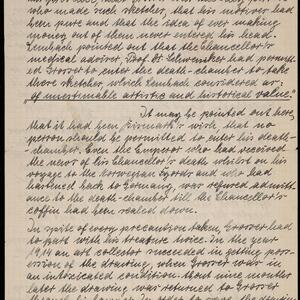 who made such sketches, that his motives had
been pure and that the idea of ever making
money out of them never entered his head.
Lenbach pointed out that the Chancellor's
medical adviser, Prof. Dr. Schweninger had permit-
ted to enter the death-chamber to take
these sketches, which Lenbach considered as
"of inestimable artistic and historical value."
It may be pointed out here,
that it had been Bismarck's wish, that no
person should be permitted to enter his death-
chamber. Even the Emperor who had received
the news of his Chancellor's death whilst on his
voyage to the Norwegian Fjords and who had
hastened back to Germany, was refused admitt-
ance to the death-chamber till the Chancellor's
coffin had been sealed down.
In spite of every precaution taken, had
to part with his treasure twice. In the year
1914 an art collector succeeded in getting poss-
ession of the drawing, when was in
an intoxicated condition. About nine months
later the drawing was returned to